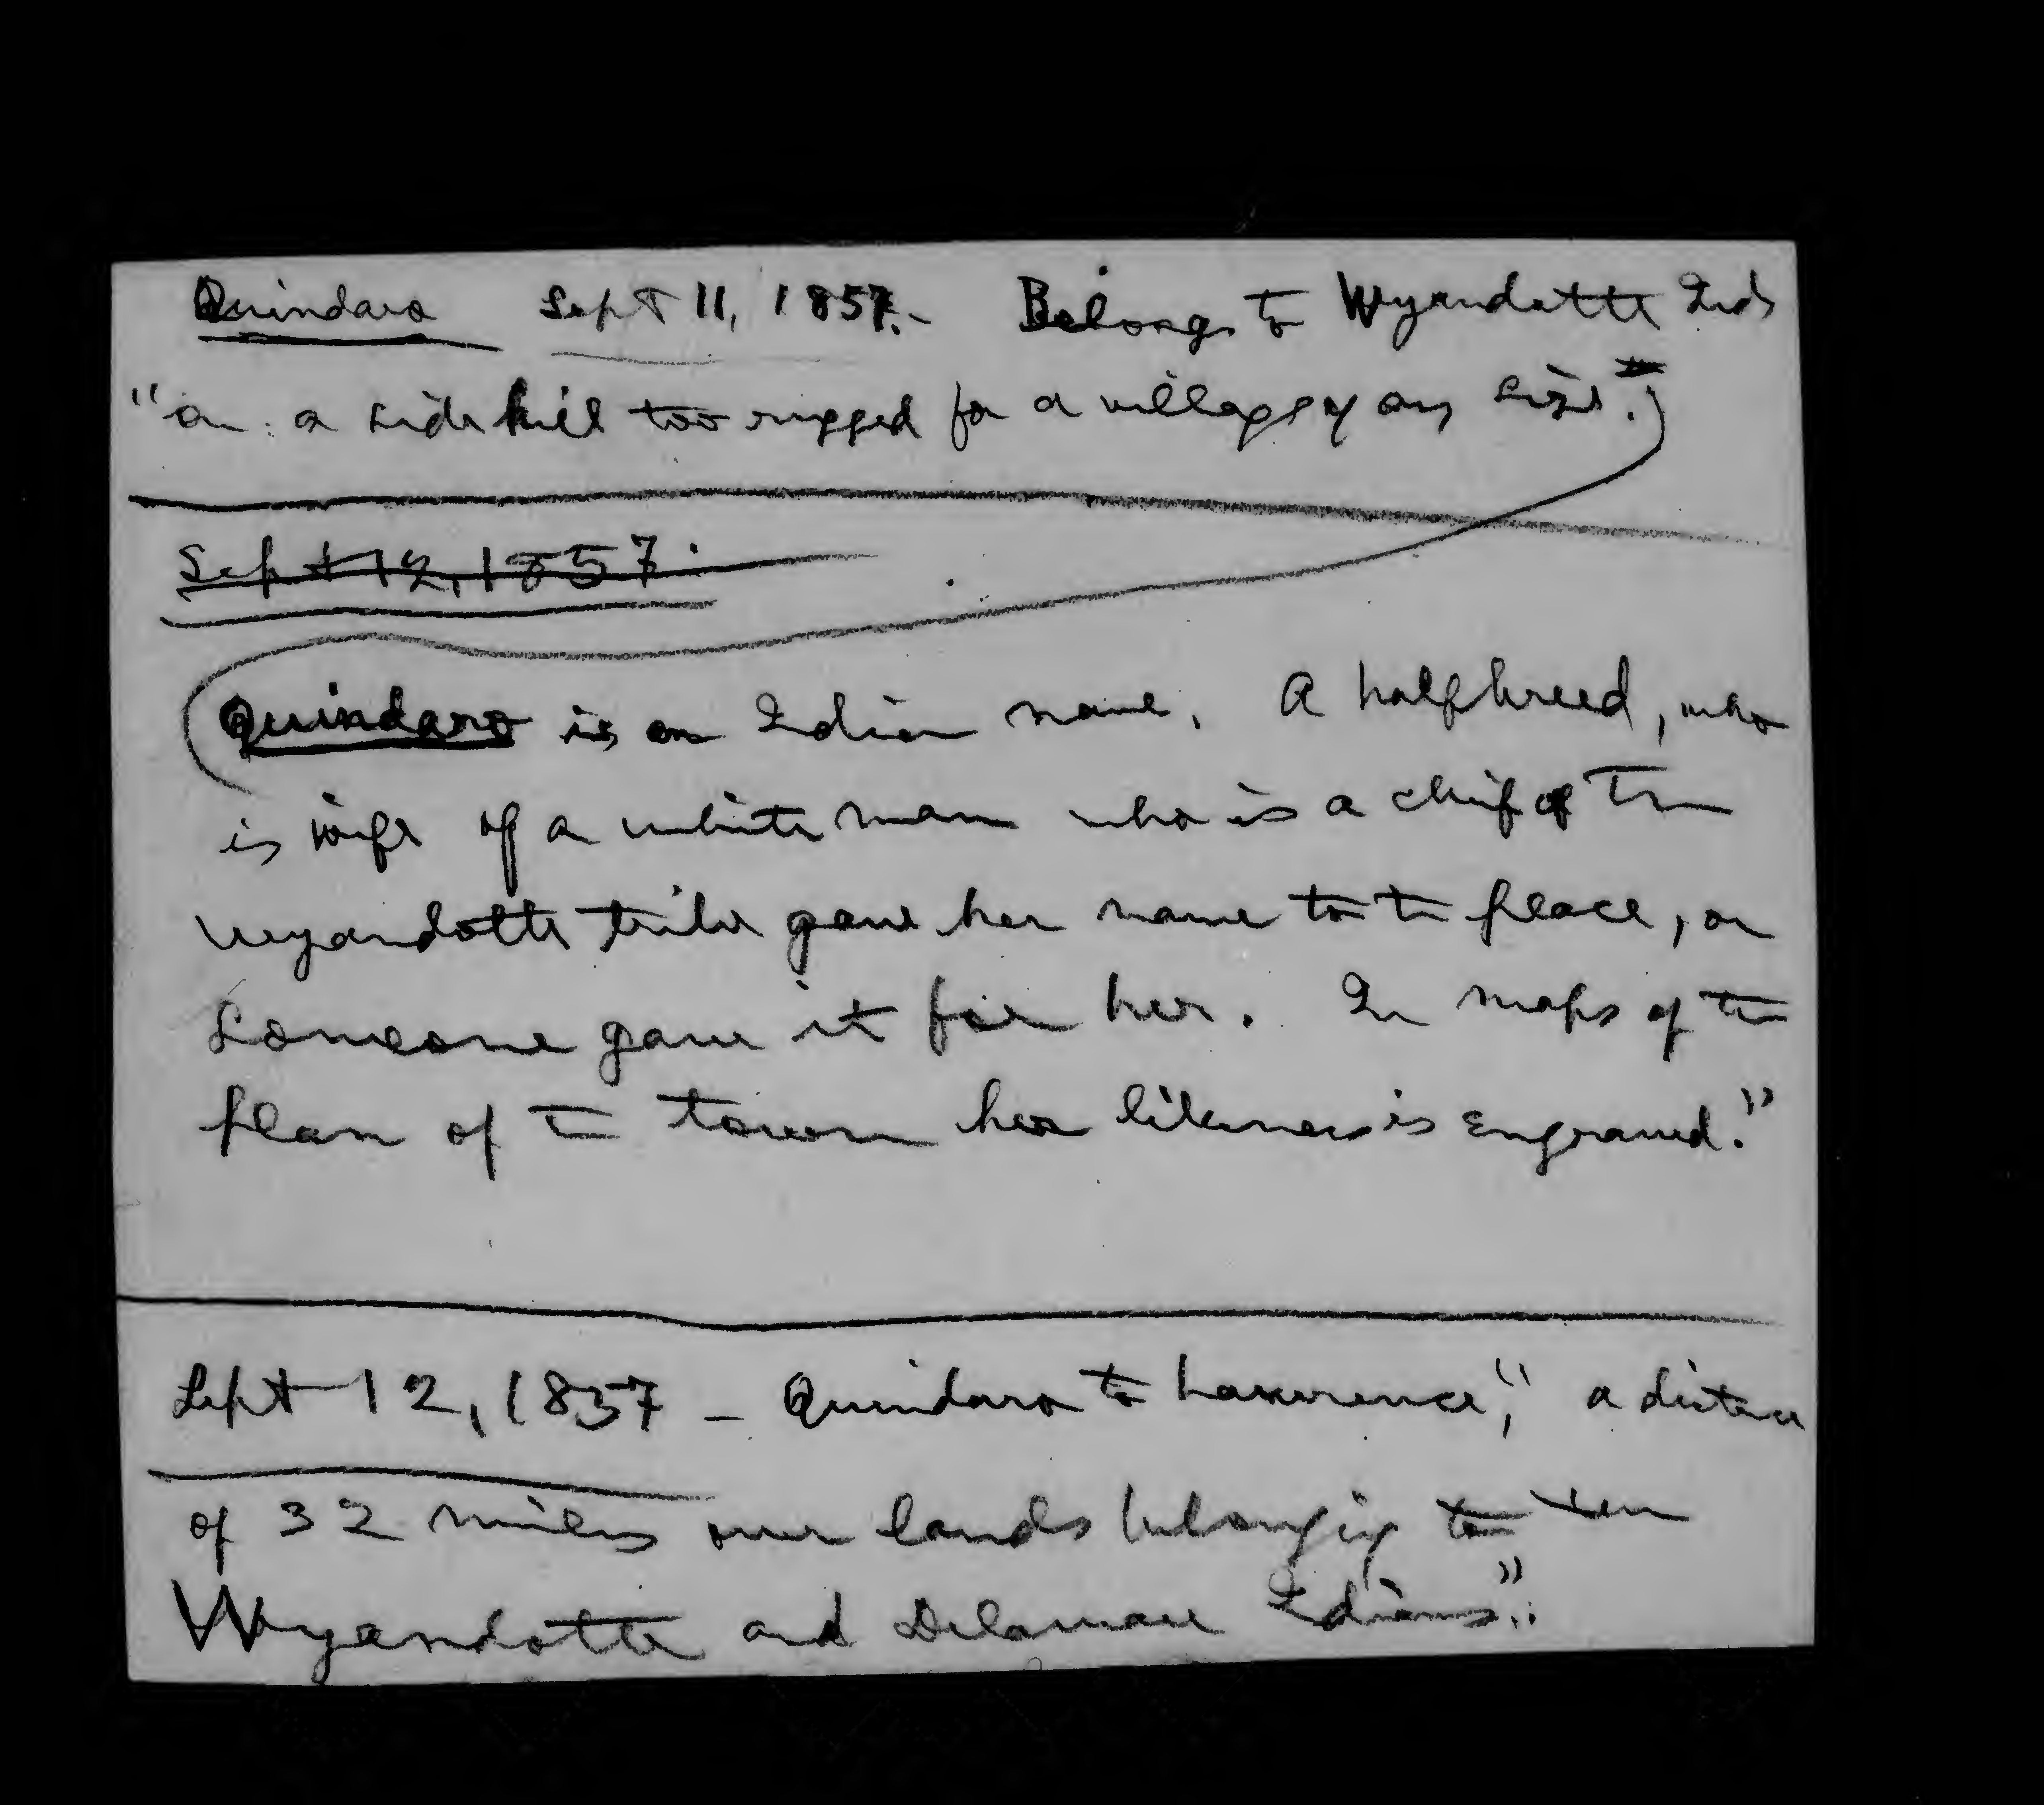 Quindaro Sept 11, 1857.- Belongs to Wyandotte Inds
"on a side hill too rugged for a village of any size.
Sept 12, 1857.
Quindaro is an Indian name. A halfbreed, who
is wife of a white man who is a chief of the
Wyandotte tribe gave her name to the place, or
someone gave it for her. In maps of the
plan of the town her likeness is engraved."
Sept 12, 1857 - Quindaro to Lawrence, "a distance
of 32 miles over lands belonging to the
Wyandotte and Delaware Indians".